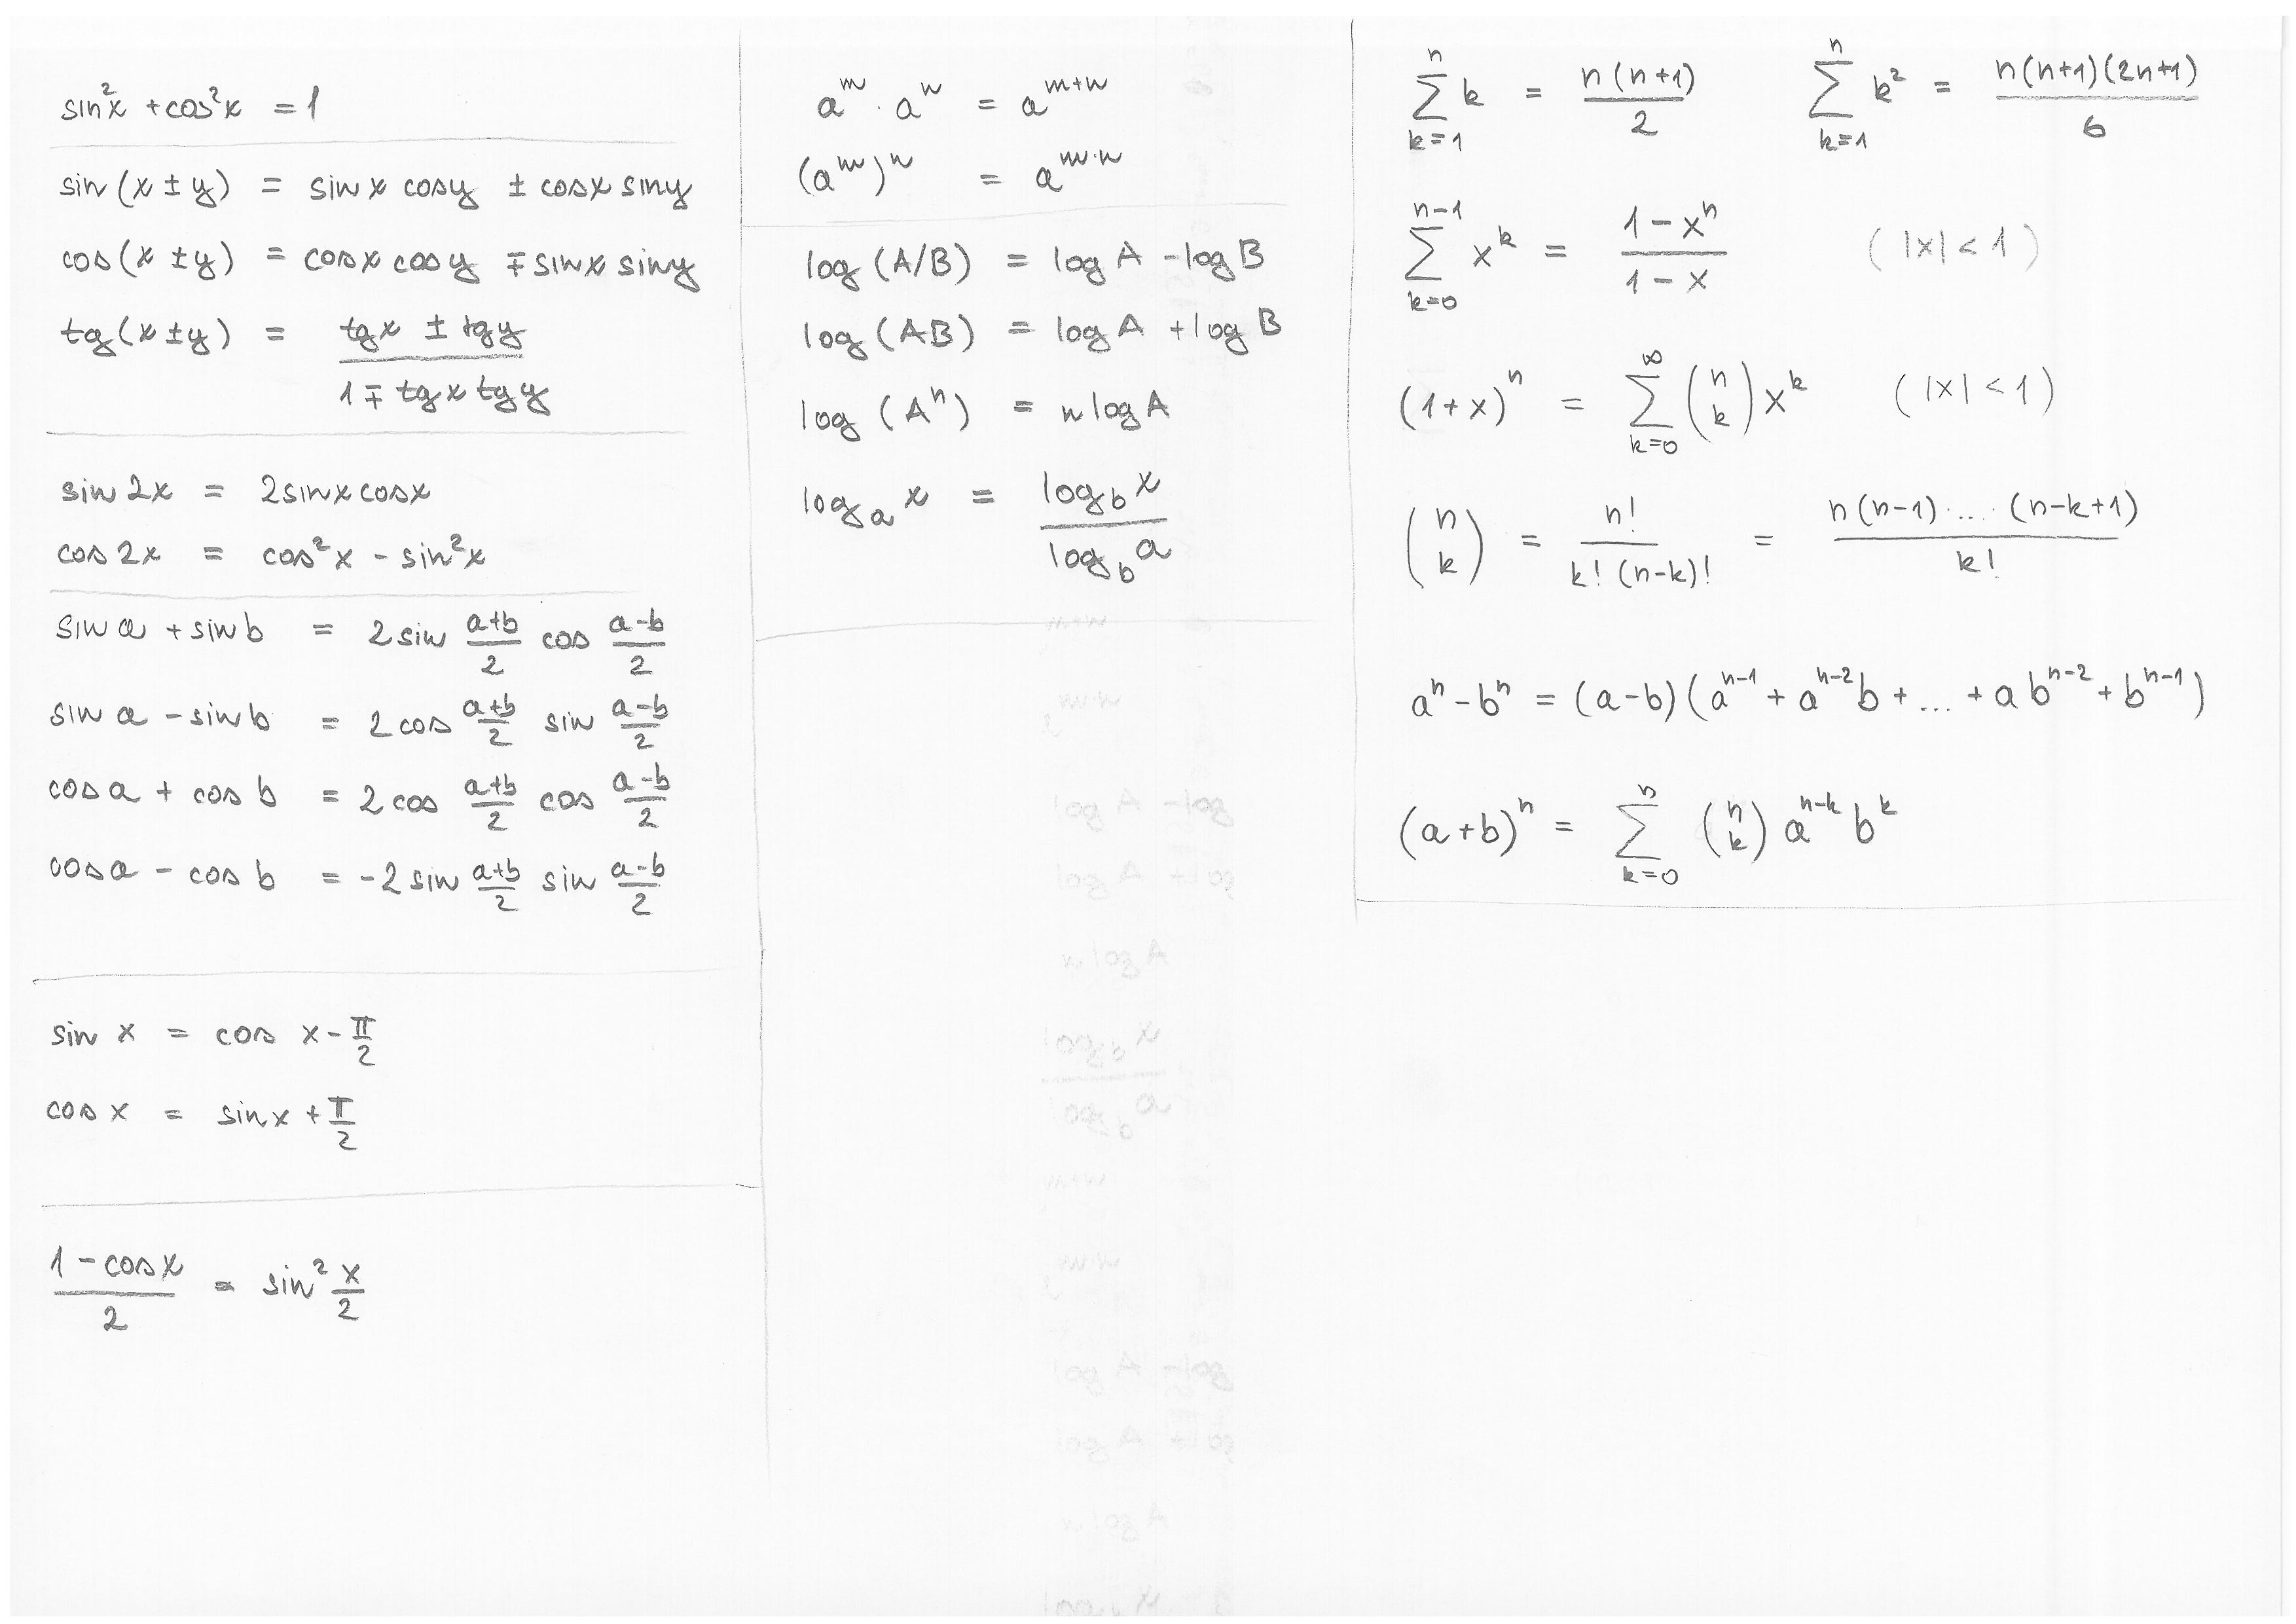 sin²x + cos²x = 1
sin(x ± y) = sin x cos y ± cos x sin y
cos(x ± y) = cos x cos y ∓ sin x sin y
tg(x ± y) = (tg x ± tg y) / (1 ∓ tg x tg y)
sin 2x = 2 sin x cos x
cos 2x = cos²x - sin²x
sin a + sin b = 2 sin (a+b)/2 cos (a-b)/2
sin a - sin b = 2 cos (a+b)/2 sin (a-b)/2
cos a + cos b = 2 cos (a+b)/2 cos (a-b)/2
cos a - cos b = -2 sin (a+b)/2 sin (a-b)/2
sin x = cos x - π/2
cos x = sin x + π/2
(1 - cos x)/2 = sin² x/2
a^m · a^n = a^(m+n)
(a^m)^n = a^(m·n)
log (A/B) = log A - log B
log (AB) = log A + log B
log (A^n) = n log A
log_a x = log_b x / log_b a
∑_{k=1}^{n} k = n(n+1)/2 ∑_{k=1}^{n} k² = n(n+1)(2n+1)/6
∑_{k=0}^{n-1} x^k = (1 - x^n)/(1 - x) (|x| < 1)
(1+x)^n = ∑_{k=0}^{∞} (n k) x^k (|x| < 1)
(n k) = n!/(k!(n-k)!) = n(n-1)·...·(n-k+1)/k!
a^n - b^n = (a-b)(a^(n-1) + a^(n-2)b + ... + ab^(n-2) + b^(n-1))
(a+b)^n = ∑_{k=0}^{n} (n k) a^(n-k) b^k